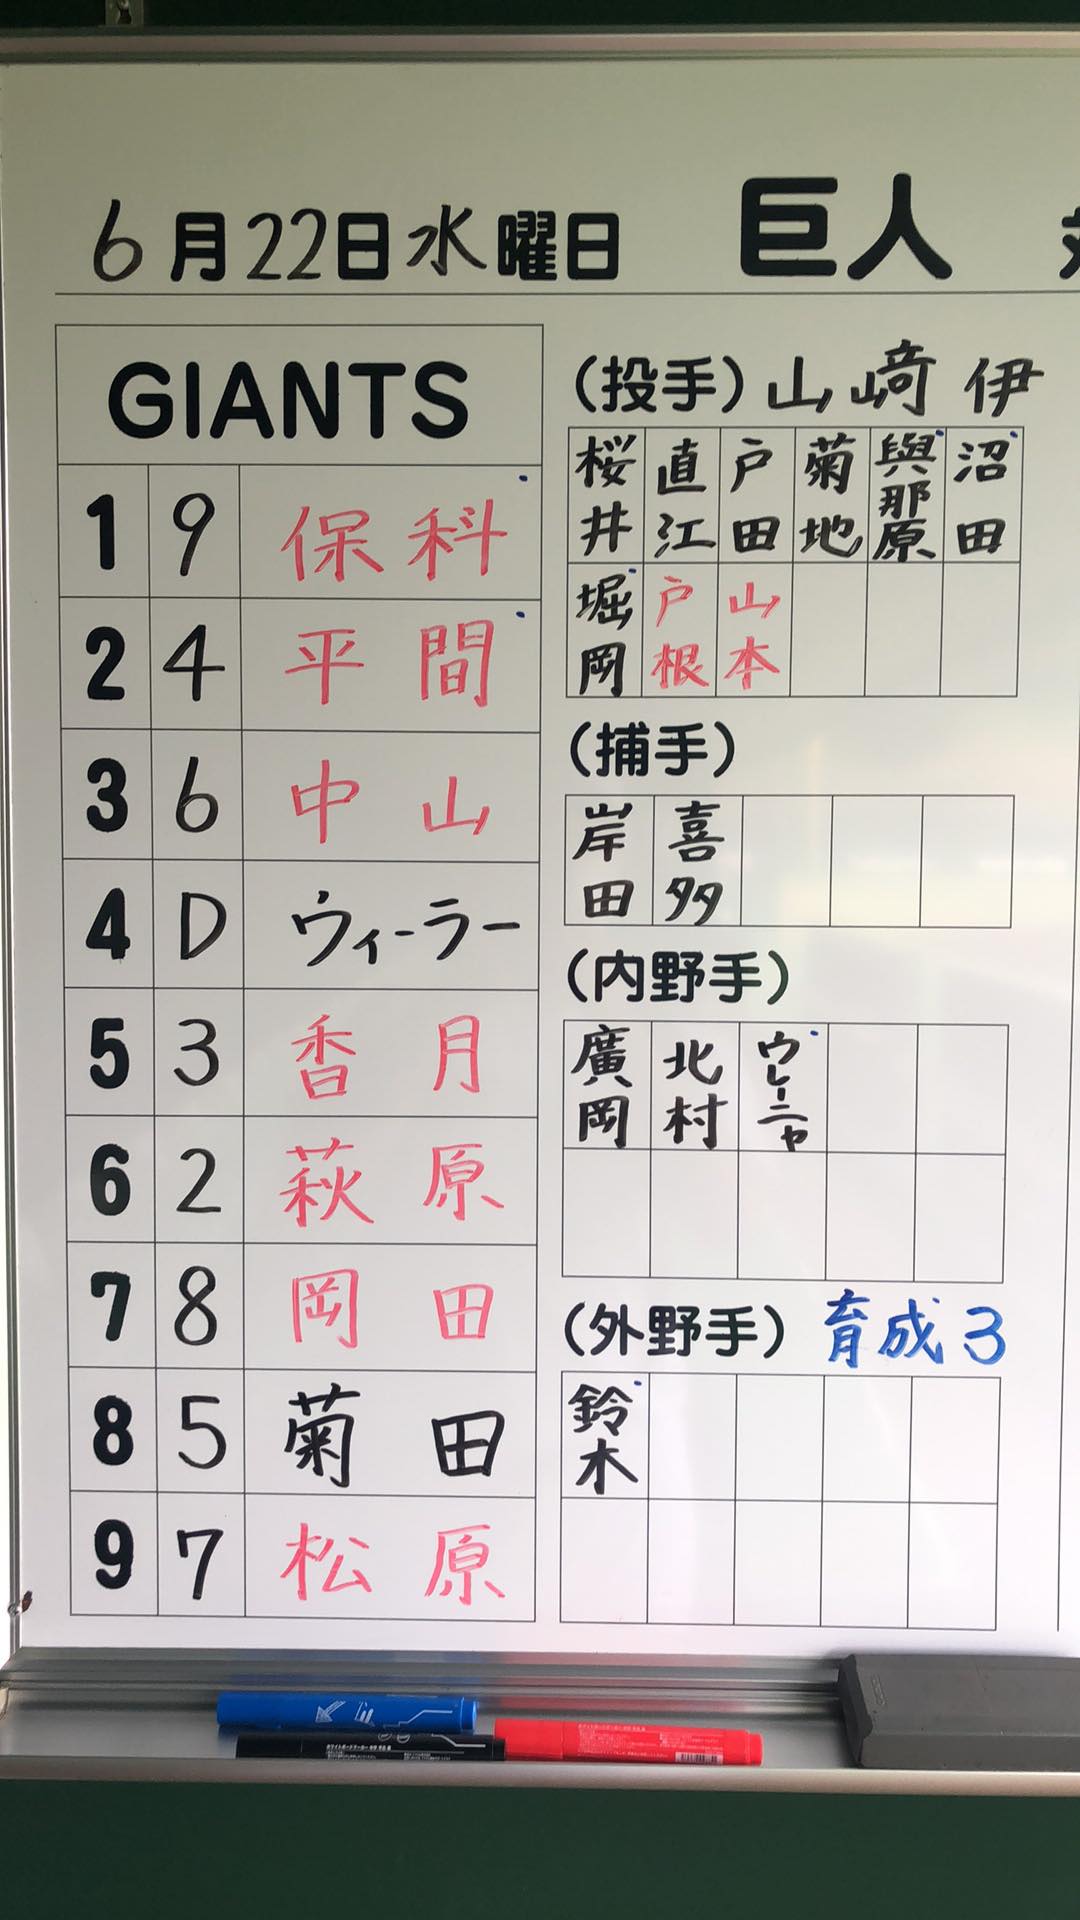 6月22日水曜日 巨人
GIANTS
1 9 保科
2 4 平間
3 6 中山
4 D ウィーラー
5 3 香月
6 2 萩原
7 8 岡田
8 5 菊田
9 7 松原
(投手) 山﨑伊
桜井 直江 戸田 菊地 與那原 沼田
堀岡 戸根 山本
(捕手)
岸田 喜多
(内野手)
廣岡 北村 ウレーニャ
(外野手) 育成3
鈴木